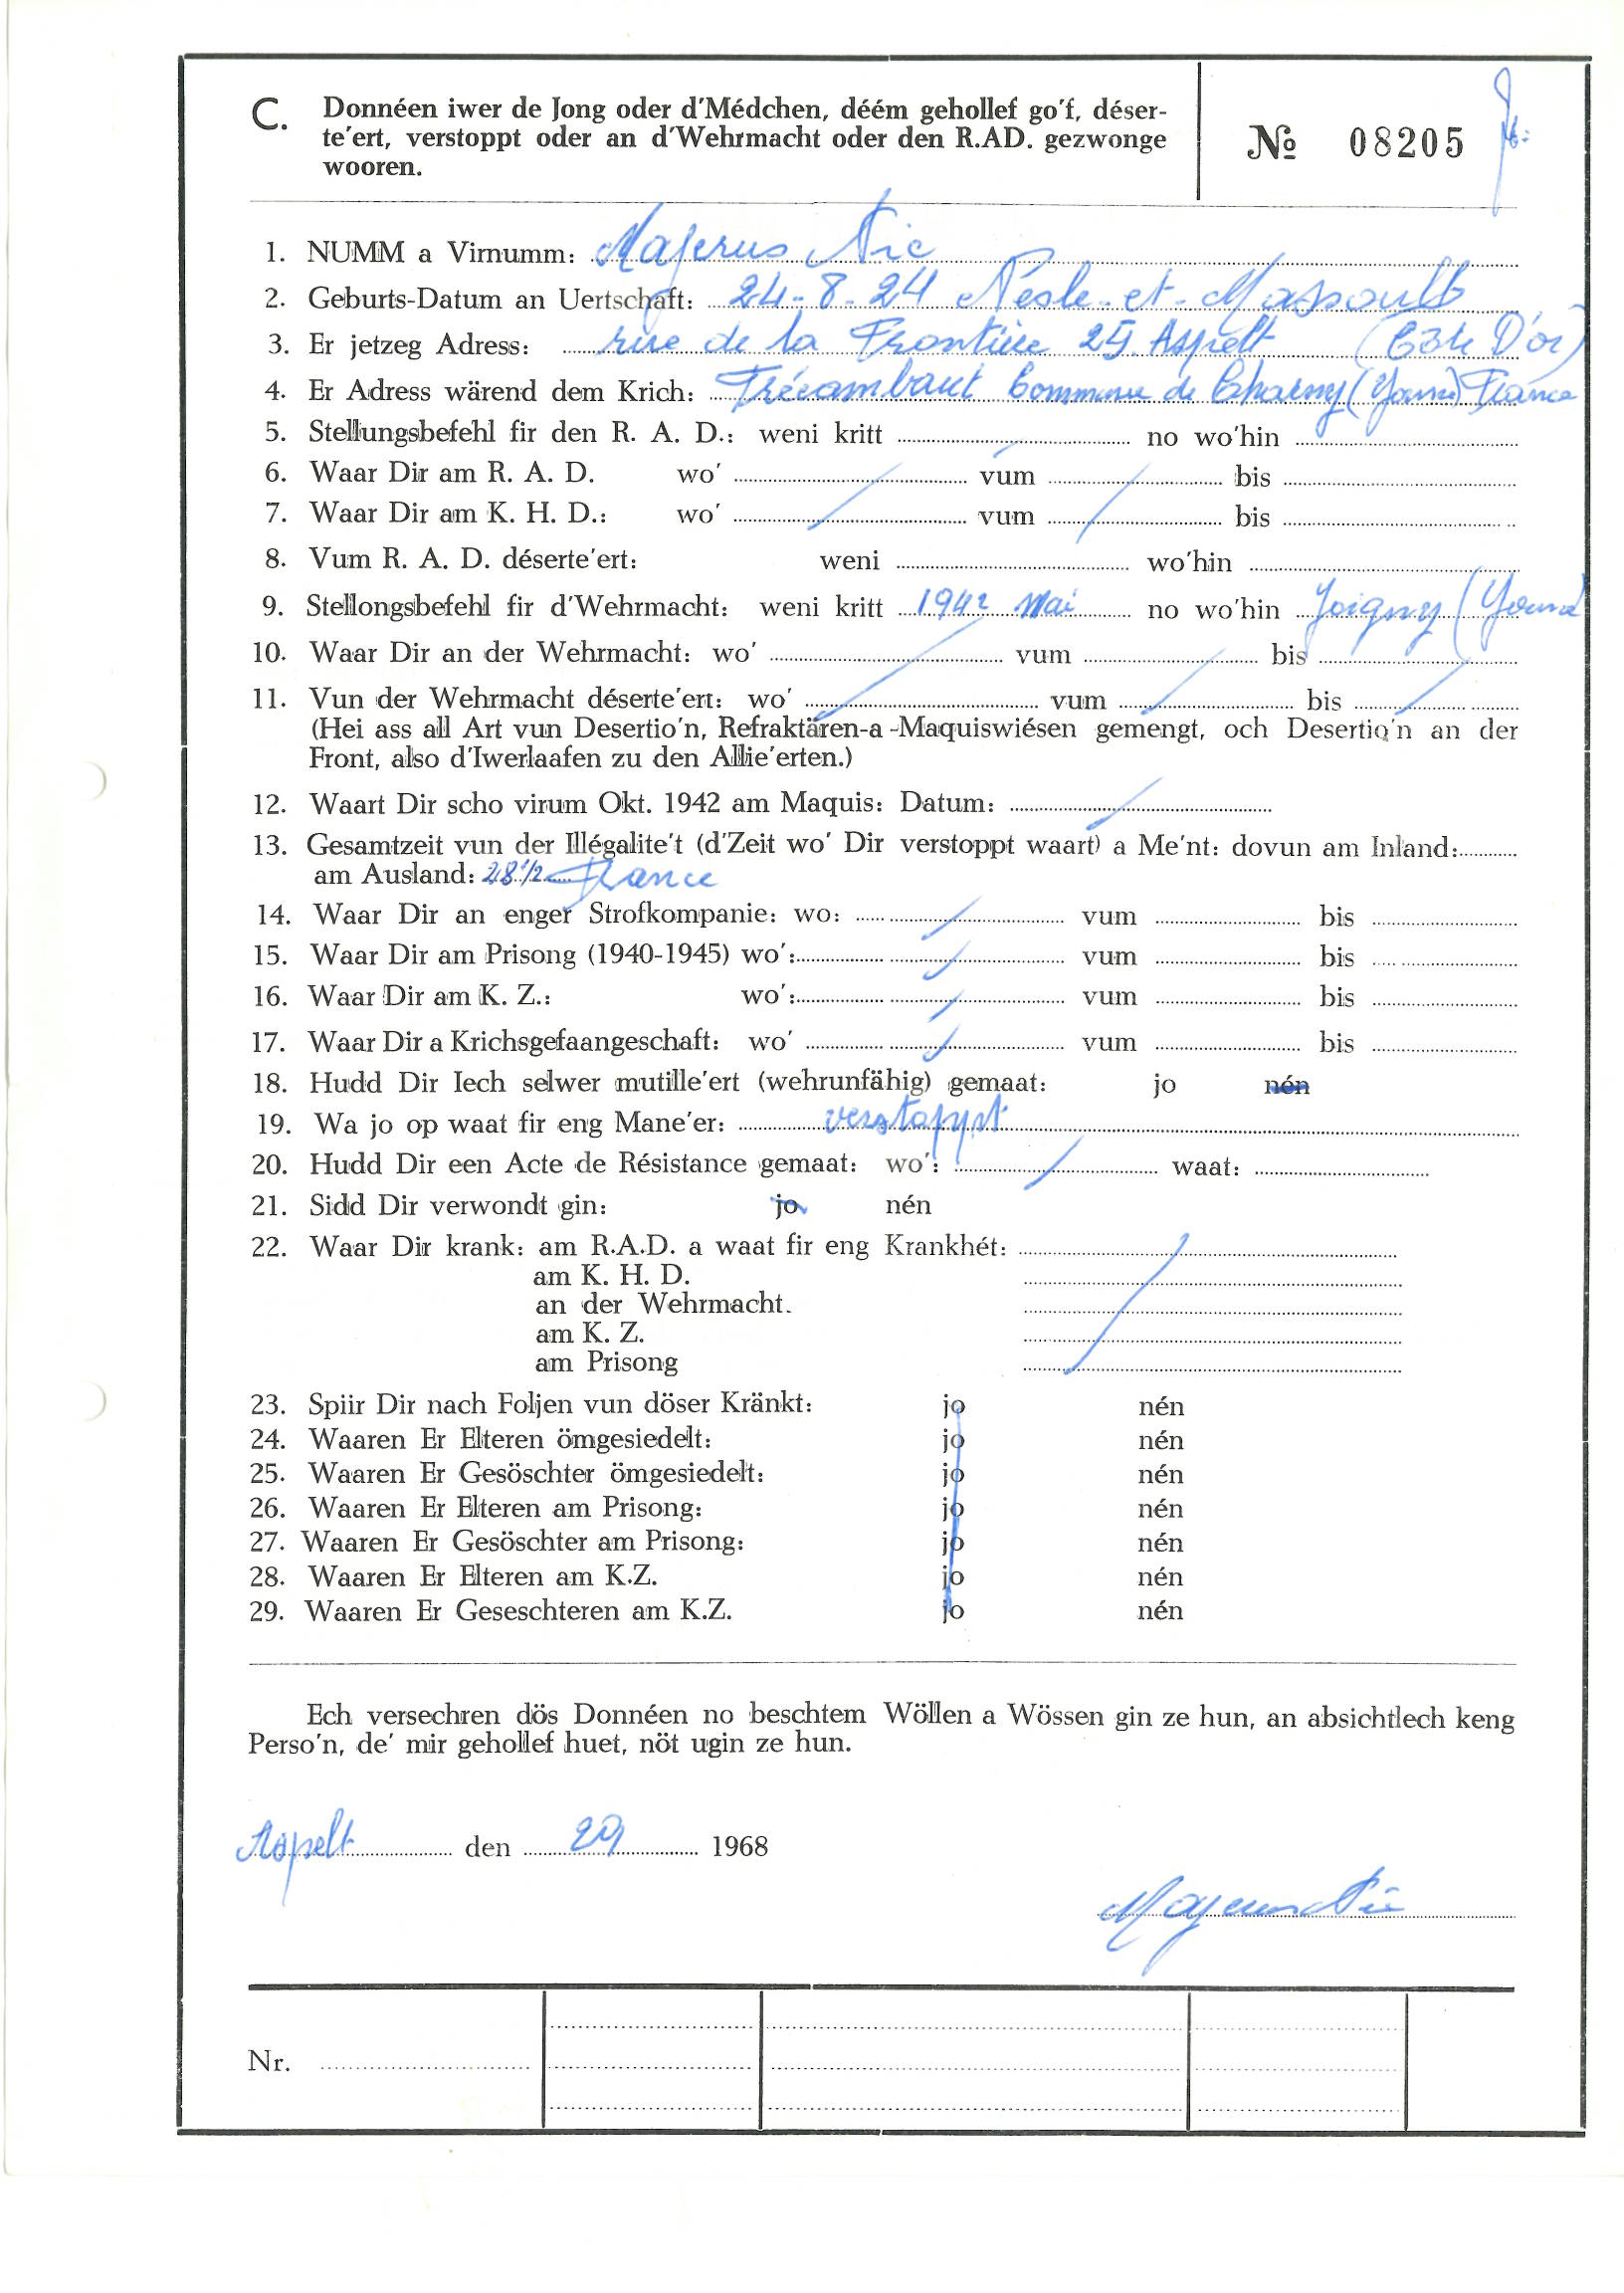 C. Donnéen iwer de Jong oder d'Médchen, déém gehollef go'f, déser-
te'ert, verstoppt oder an d'Wehrmacht oder den R.AD. gezwonge
wooren.
№ 08205
1. NUMM a Virnumm: Majerus Nic
2. Geburts-Datum an Uertschaft: 24-8-24 Nesle-et-Massoult
3. Er jetzeg Adress: rue de la Frontière 25 Aspelt (Côte D'or)
4. Er Adress wärend dem Krich: Commune de Charny (Yonne) France
5. Stellungsbefehl fir den R. A. D.: weni kritt no wo'hin
6. Waar Dir am R. A. D. wo' vum bis
7. Waar Dir am K. H. D.: wo' vum bis
8. Vum R. A. D. déserte'ert: weni wo'hin
9. Stellongsbefehl fir d'Wehrmacht: weni kritt 1942 Mai no wo'hin Joigny (Yonne
10. Waar Dir an der Wehrmacht: wo' vum bis
11. Vun der Wehrmacht déserte'ert: wo' vum bis
(Hei ass all Art vun Desertio'n, Refraktären-a-Maquiswiésen gemengt, och Desertio'n an der
Front, also d'Iwerlaafen zu den Allie'erten.)
12. Waart Dir scho virum Okt. 1942 am Maquis: Datum:
13. Gesamtzeit vun der Illégalite't (d'Zeit wo' Dir verstoppt waart) a Me'nt: dovun am Inland:
am Ausland: 28 1/2 France
14. Waar Dir an enger Strofkompanie: wo: vum bis
15. Waar Dir am Prisong (1940-1945) wo': vum bis
16. Waar Dir am K. Z.: wo': vum bis
17. Waar Dir a Krichsgefaangeschaft: wo' vum bis
18. Hudd Dir Iech selwer mutille'ert (wehrunfähig) gemaat: jo nén
19. Wa jo op waat fir eng Mane'er: verstoppt
20. Hudd Dir een Acte de Résistance gemaat: wo': waat:
21. Sidd Dir verwondt gin: jo nén
22. Waar Dir krank: am R.A.D. a waat fir eng Krankhét:
am K. H. D.
an der Wehrmacht.
am K. Z.
am Prisong
23. Spiir Dir nach Foljen vun döser Kränkt: jo nén
24. Waaren Er Elteren ömgesiedelt: jo nén
25. Waaren Er Gesöschter ömgesiedelt: jo nén
26. Waaren Er Elteren am Prisong: jo nén
27. Waaren Er Gesöschter am Prisong: jo nén
28. Waaren Er Elteren am K.Z. jo nén
29. Waaren Er Geseschteren am K.Z. jo nén
Ech versechren dös Donnéen no beschtem Wöllen a Wössen gin ze hun, an absichtlech keng
Perso'n, de' mir gehollef huet, nöt ugin ze hun.
Aspelt den 29 1968
Majerus Nic
Nr.